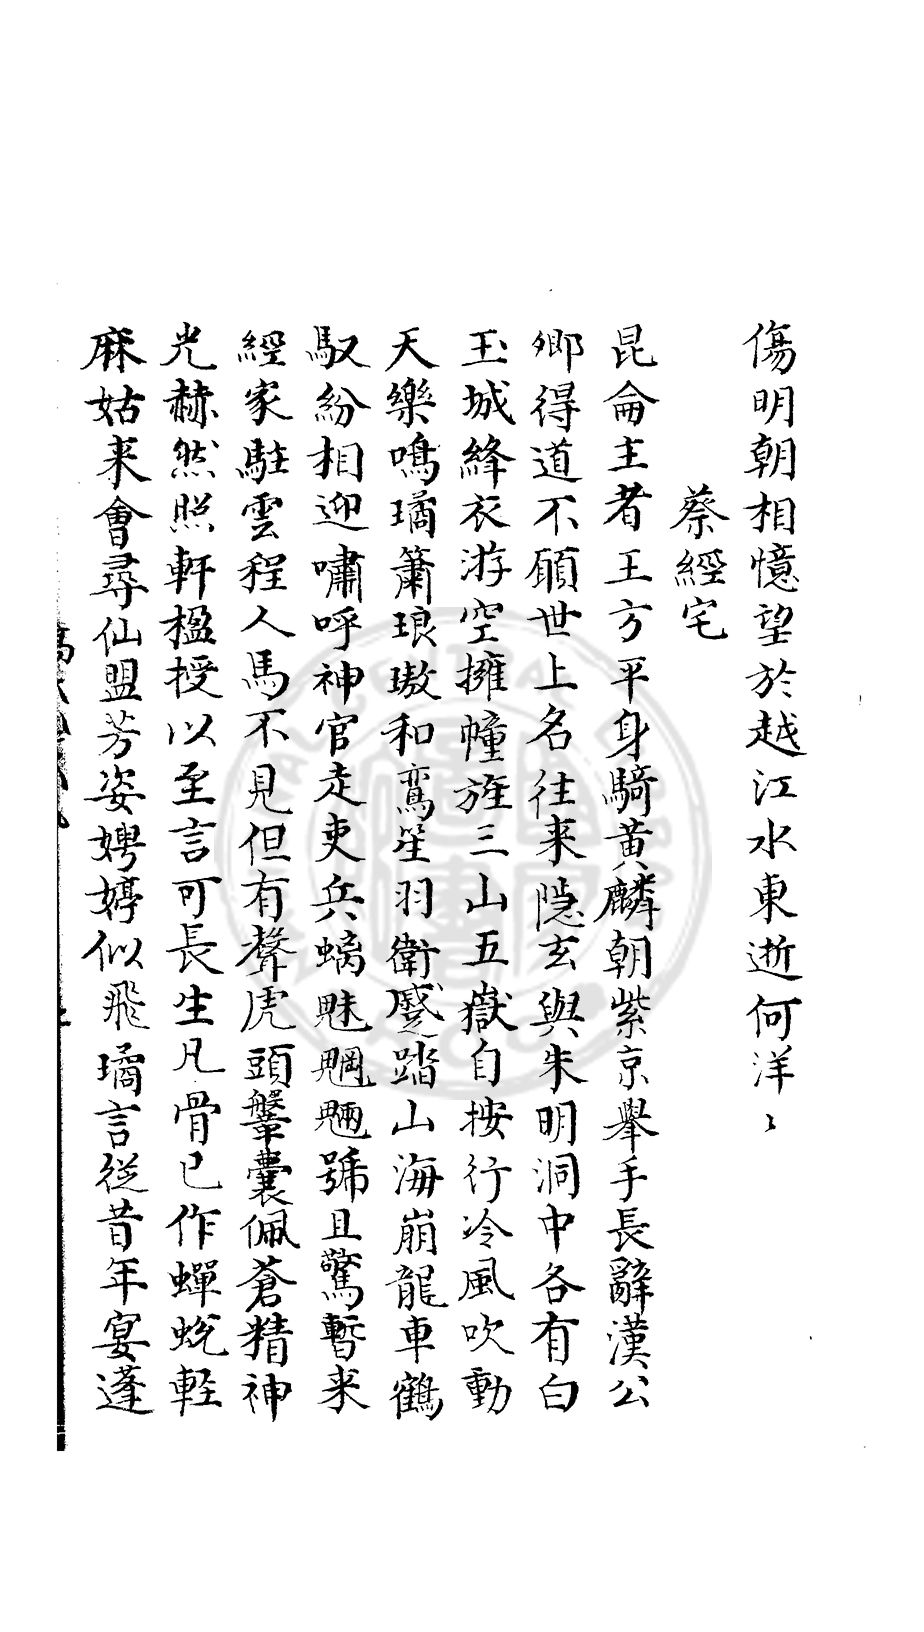 傷明朝相憶望於越江水東逝何洋〻
蔡經宅
昆侖主者王方平身騎黃麟朝紫京舉手長辭漢公
卿得道不願世上名往来隐玄與朱明洞中各有白
玉城絳衣游空擁幢旌三山五嶽自按行冷風吹動
天樂鳴璚簫琅璈和鸞笙羽衛蹙踏山海崩龍車鶴
馭紛相迎嘯呼神官走吏兵螭魅魍魎號且驚暫来
經家駐雲程人馬不見但有聲虎頭鞶囊佩蒼精神
光赫然照軒楹授以至言可長生凡骨已作蟬蛻輕
麻姑来會尋仙盟芳姿娉婷似飛璚言從昔年宴蓬